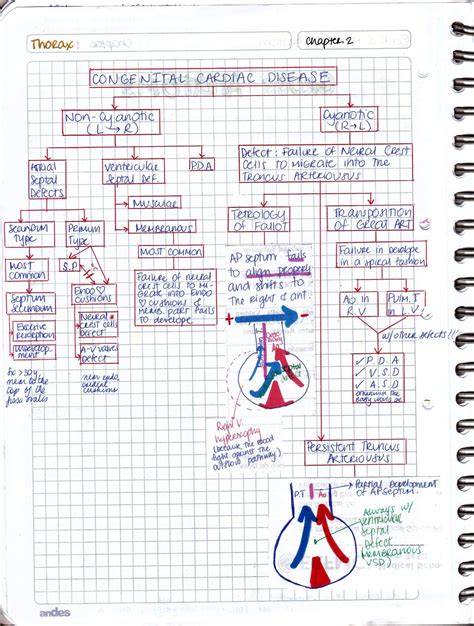 Thorax:
Chapter 2
CONGENITAL CARDIAC DISEASE
Non-Cyanotic
(L → R)
Cyanotic
(R→L)
Atrial
Septal
Defects
Ventricular
Septal Def.
P.D.A
Muscular
Membranous
Defect: Failure of Neural Crest
cells to migrate into the
Troncus Arteriousus
Secundum
Type
Primum
Type
Most
Common
S.P
Endo
cushions
Septum
secundum
Neural
crest cells
Defect
Excesive
A-V valves
Defect
near endo.
cushions
near to the
top of the
MOST COMMON
Failure of neural
crest cells to mi-
grate into Endo
cushions &
memb. part fails
to develope
Tetrology
of Fallot
AP septum fails
to align properly
and shifts to
The right & ant.
Right V
hypertrophy
(because the blood
fight against the
outflow pathway)
Transpotition
of Great Art
Failure in develope
in a spical fashion
Ao in
R.V
PUM.T
in L.V
w/other defects!!!
✓ P.D.A
✓ V.S.D
✓ A.S.D
Persistent Truncus
Arteriousus
P.T
Ao
Partial Development
of AP Septum.
Always w/
ventricular
septal
Defect
Membranous
VSD
andes